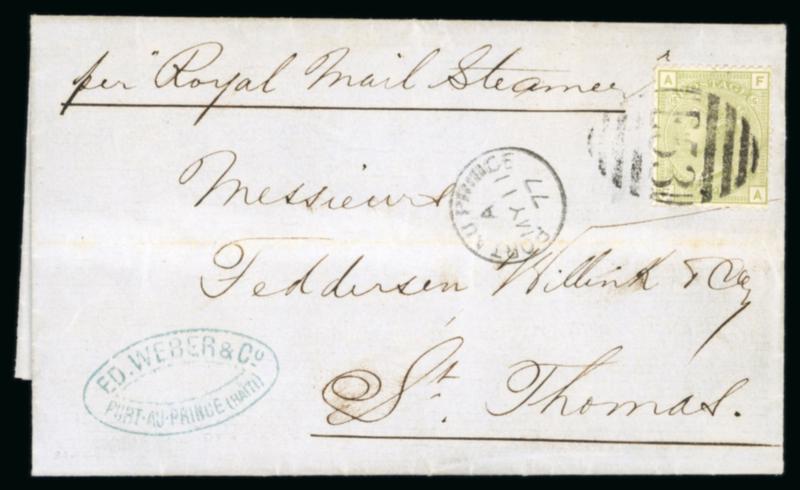 per "Royal Mail Steamer"
A F
E53
A
PORT AU PRINCE
A
MY 11
77
Messieurs
Feddersen Willink & Co
ED. WEBER & Co
PORT-AU-PRINCE (HAITI)
St. Thomas.